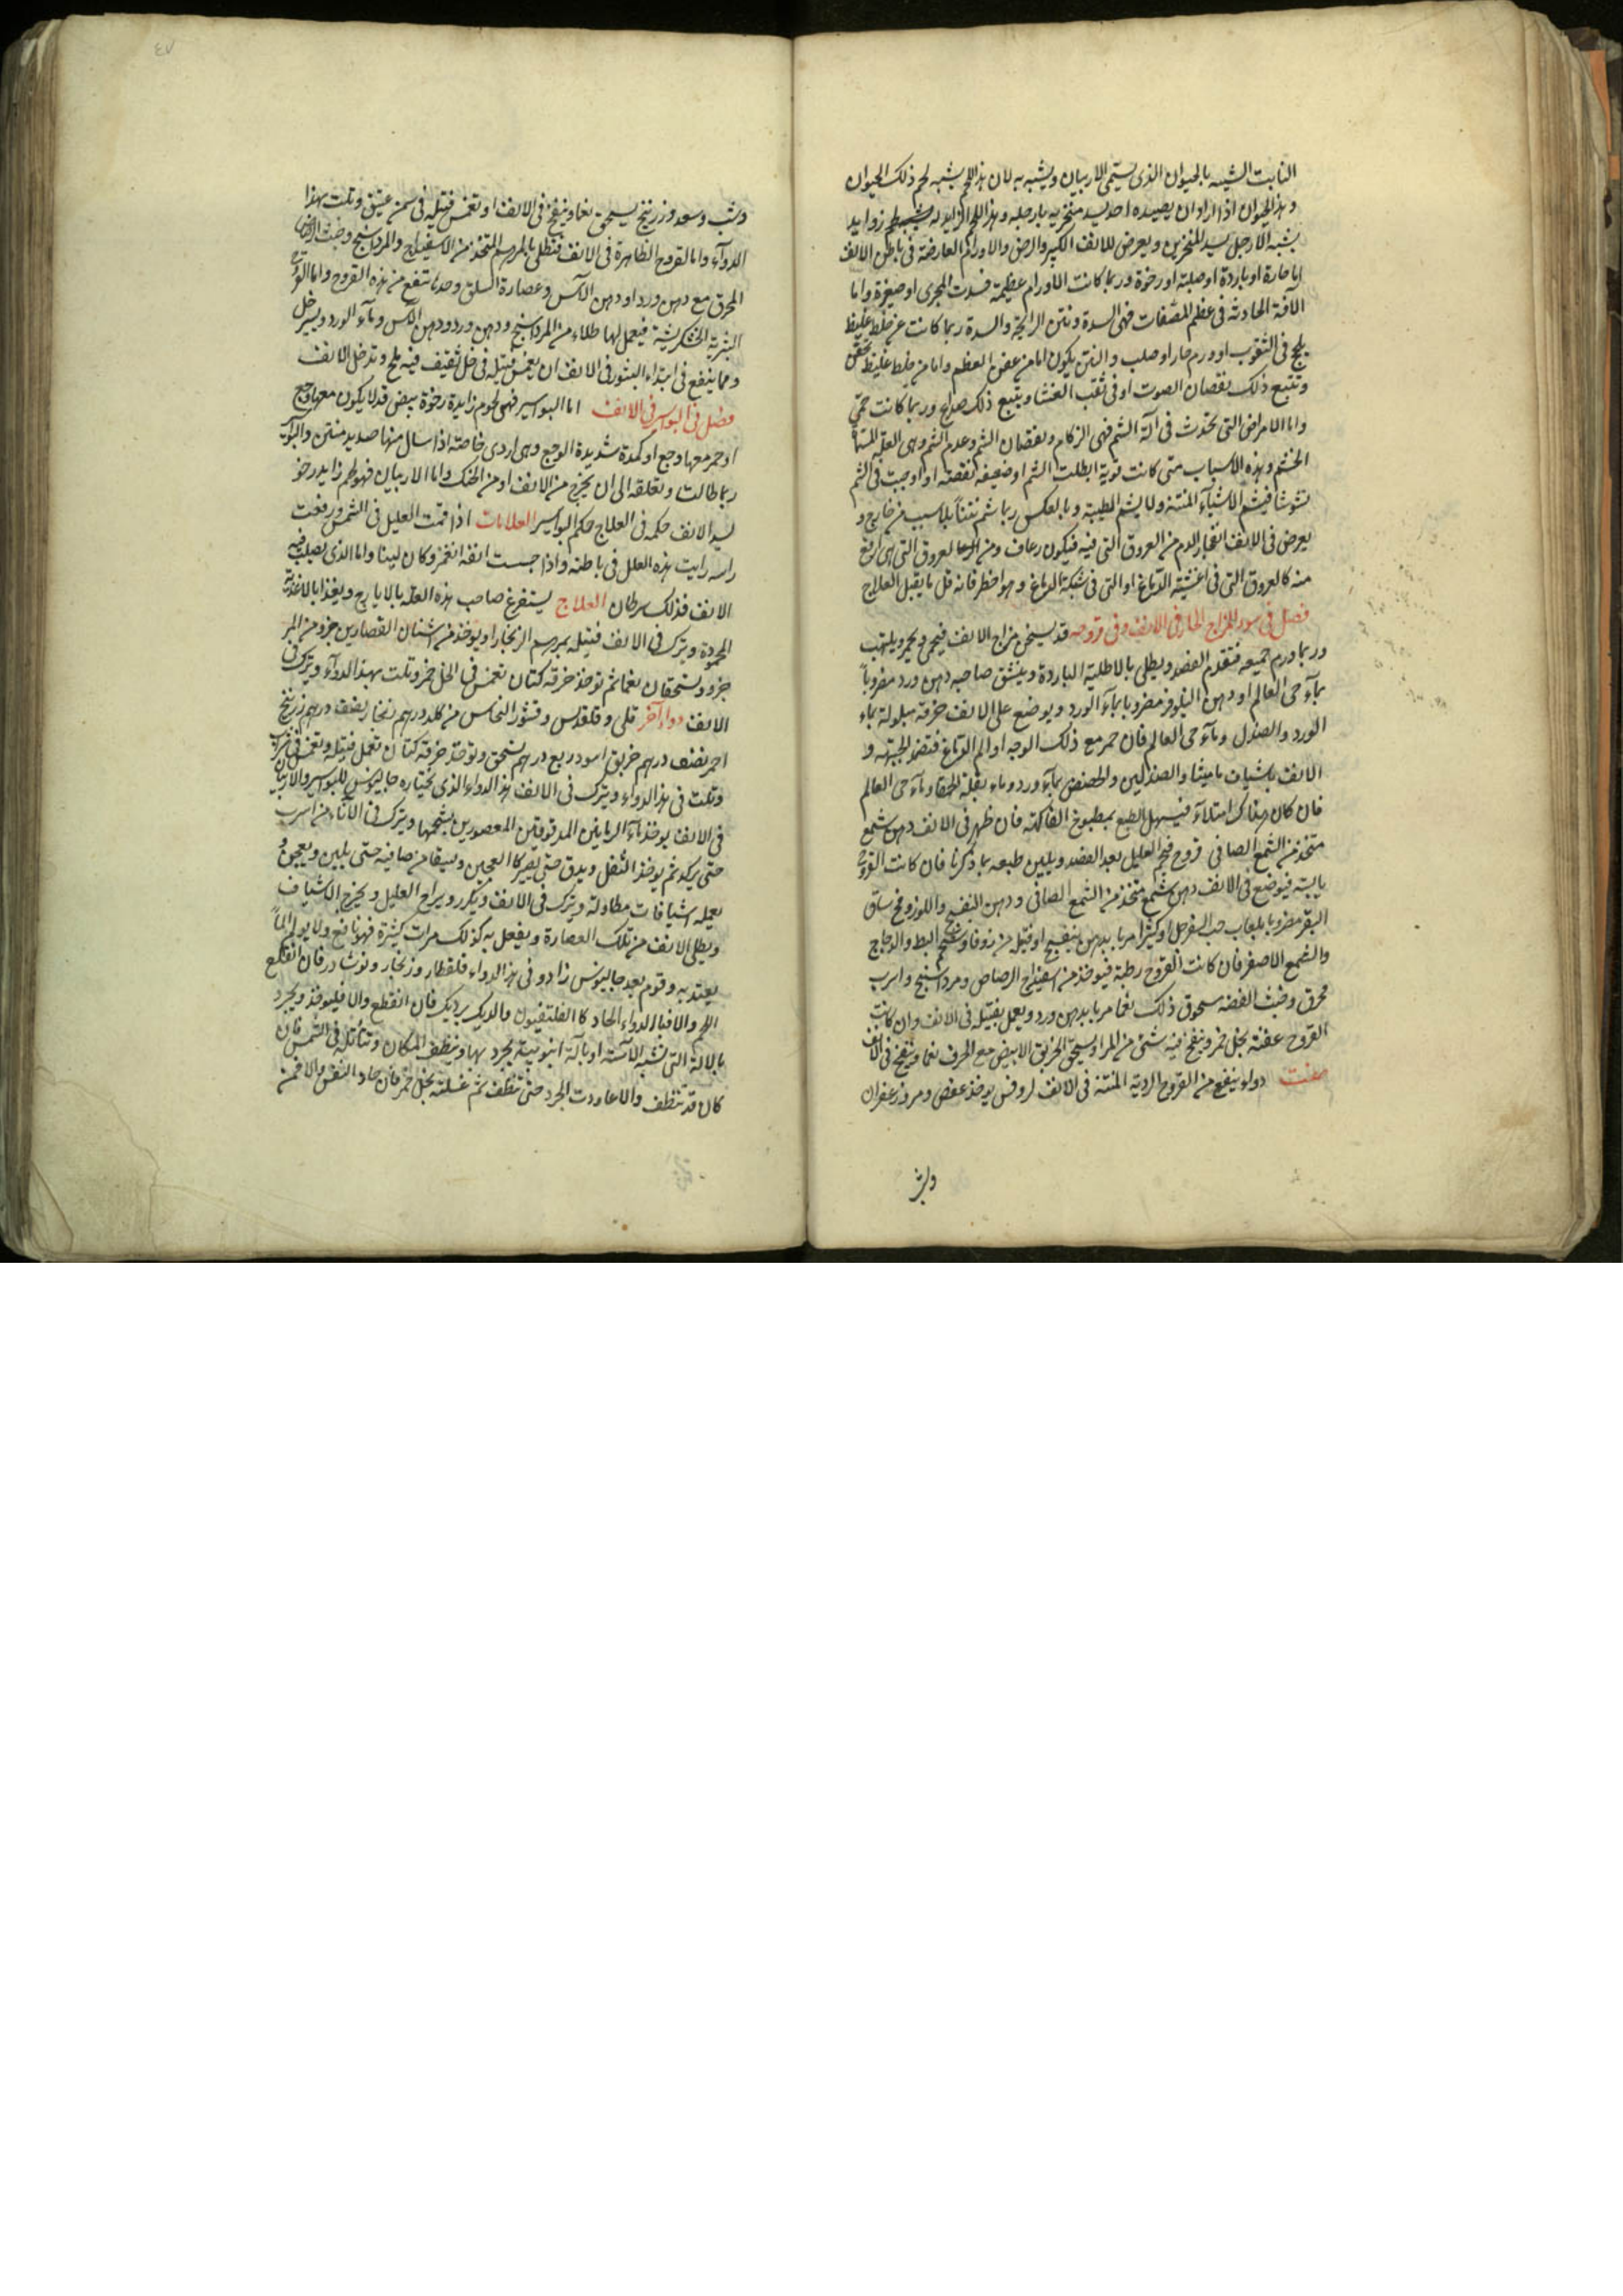 النابت الشبيه بالحيوان الذى يسمى الاربيان ويشبه به لان هذا اللحم يشبه لحم ذلك الحيوان
وهذا الحيوان اذا اراد ان يصيده احد يسد منخريه بارجله وهذا اللحم الزايد له زوايد
يشبه الارجل يسد المنخرين ويعرض للانف الكسر والرض والاورام العارضة فى باطن الانف
اما حارة او باردة او صلبة او رخوة وربما كانت الاورام عظيمة فسدت المجرى او صغيرة واما
الافة الحادثة فى عظم المصفات فهى السدة ونتن الرايحة والسدة ربما كانت عن خلط غليظ
يلحج فى الثقوب او ورم حار او صلب والنتن يكون اما من عفن العظم واما من خلط غليظ
ويتبع ذلك نقصان الصوت او فى ثقب الغشا ويتبع ذلك صداع وربما كانت حمى
واما الامراض التى تحدث فى آلة الشم فهى الزكام ونقصان الشم وعدم الشم وهى العلة المسماة
الخشم وهذه الاسباب متى كانت قوية ابطلت الشم او ضعيفة نقصته او اوجبت فى الشم
تشوشا فيشم الاشياء المنتنة ولا يشم الطيبة وبالعكس ربما شم نتنا بلا سبب من خارج و
يعرض فى الانف انفجار الدم من العروق التى فيه فيكون رعاف ومن العروق التى هى ارفع
منه كالعروق التى فى اغشية الدماغ او التى فى شبكة الدماغ وهو اخطر فانه قل ما يقبل العلاج
فصل فى سوء المزاج الحار فى الانف وفى قروحه قد يسخن مزاج الانف فيحمى ويحمر ويلتهب
وربما ورم جميعه فتقدم الفصد ويطلى بالاطلية الباردة وينشق صاحبه دهن ورد مضروبا
بماء حى العالم او دهن النيلوفر مضروبا بماء الورد ويوضع على الانف خرقة مبلولة بماء
الورد والصندل وماء حى العالم فان حمر مع ذلك الوجه او الم الدماغ فتضمد الجبهة و
الانف باشياف ماميثا والصندلين والحضض بماء ورد وماء بقلة الحمقا وماء حى العالم
فان كان هناك امتلاء فيسهل الطبع بمطبوخ الفاكهة فان ظهر فى الانف دهن شمع
متخذ من الشمع الصافى قروح فيحم العليل بعد الفصد ويلين طبعه بما ذكرنا فان كانت القروح
يابسة فيوضع فى الانف دهن شمع متخذ من الشمع الصافى ودهن البنفسج واللوز ومخ ساق
البقر مضروبا بلعاب حب السفرجل او كثيرا مربا بدهن بنفسج او فتيلة من زوفا وشحم البط والدجاج
والشمع الاصفر فان كانت القروح رطبة فيوخذ من اسفيداج الرصاص ومرداسنج واسرب
محرق وخبث الفضة مسحوق ذلك نعما مربا بدهن ورد ويعمل بفتيلة فى الانف وان كانت
القروح عفنة بخل خمر وينفخ فيه شئ من المر او يسحق الخربق الابيض مع الحرف نعما وينفخ فى الانف
صفت دواء ينفع من القروح الردية المنتنة فى الانف لروفس يوخذ عفص ومر وزعفران
وشب
وشب وسعد وزرنيخ يسحق نعما وينفخ فى الانف او تغمس فتيلة فى سمن عتيق وتلت بهذا
الدواء واما القروح الظاهرة فى الانف فتطلى بالمرهم المتخذ من الاسفيداج والمرداسنج وخبث الرصاص
المحرق مع دهن ورد او دهن الآس وعصارة السلق وحدها تنفع من هذه القروح واما القروح
البثرية الخشكريشية فيعمل لها طلاء من المرداسنج ودهن ورد ودهن الآس وماء الورد ويسير خل
ومما ينفع فى ابتداء البثور فى الانف ان يغمس فتيلة فى خل ثقيف فيه ملح وتدخل الانف
فصل فى البواسير فى الانف اما البواسير فهى لحوم زايدة رخوة بيض قد لا يكون معها وجع
او حمر معها وجع او كمدة شديدة الوجع وهى اردى خاصة اذا سال منها صديد منتن والبواسير
ربما طالت وتعلقه الى ان يخرج من الانف او من الحنك واما الاربيان فهو لحم زايد رخو
يسد الانف حكمه فى العلاج حكم البواسير العلامات اذا اقمت العليل فى الشمس ورفعت
راسه رايت هذه العلل فى باطنه واذا جست انفه انغمز وكان لينا واما الذى يصلب فيه
الانف فذلك سرطان العلاج يستفرغ صاحب هذه العلة بالايارج ويغذا بالاغذية
المحمودة ويترك فى الانف فتيلة بمرهم الزنجار او يوخذ من اشنان القصارين جزو من المر
جزو ويسحقان نعما ثم توخذ خرقة كتان تغمس فى الخل خمر وتلت بهذا الدواء ويترك فى
الانف دواء آخر قلى وقلقديس وقشور النحاس من كل درهم زنجار نصف درهم زرنيخ
احمر نصف درهم خربق اسود ربع درهم يسحق وتوخذ خرقة كتان تعمل فتيلة وتغمس فى
وتلت فى هذا الدواء ويترك فى الانف هذا الدواء الذى يختاره جالينوس للبواسير والاربيان
فى الانف يوخذ ماء الرمانين المدقوقين المعصورين بشحمها ويترك فى الآناء من اسرب
حتى يركد ثم يوخذ الثفل ويدق حتى يصير كالعجين ويسقا من صافيه حتى يلين ويعجن و
يعمله اشيافات مطاولة ويترك فى الانف ويكرر ويراح العليل ويخرج الاشياف
ويطلى الانف من تلك العصارة ويفعل به كذلك مرات كثيرة فهو نافع ولا يولم الما
يعتد به وقوم بعد جالينوس زادو فى هذا الدواء قلقطار وزنجار ونوشادر فان انقلع
اللحم والا فبالدواء الحاد كالفلتفيون والديك برديك فان انقطع والا فليوخذ ويجرد
بالالة التى تشبه الآسنة او بآلة انبوبية يجرد بها وينظف المكان وتتأمله فى الشمس فان
كان قد تنظف والا عاودت الجرد حتى تنظف ثم غسلته بخل خمر فان جاد النفس والا فمن
٤٧